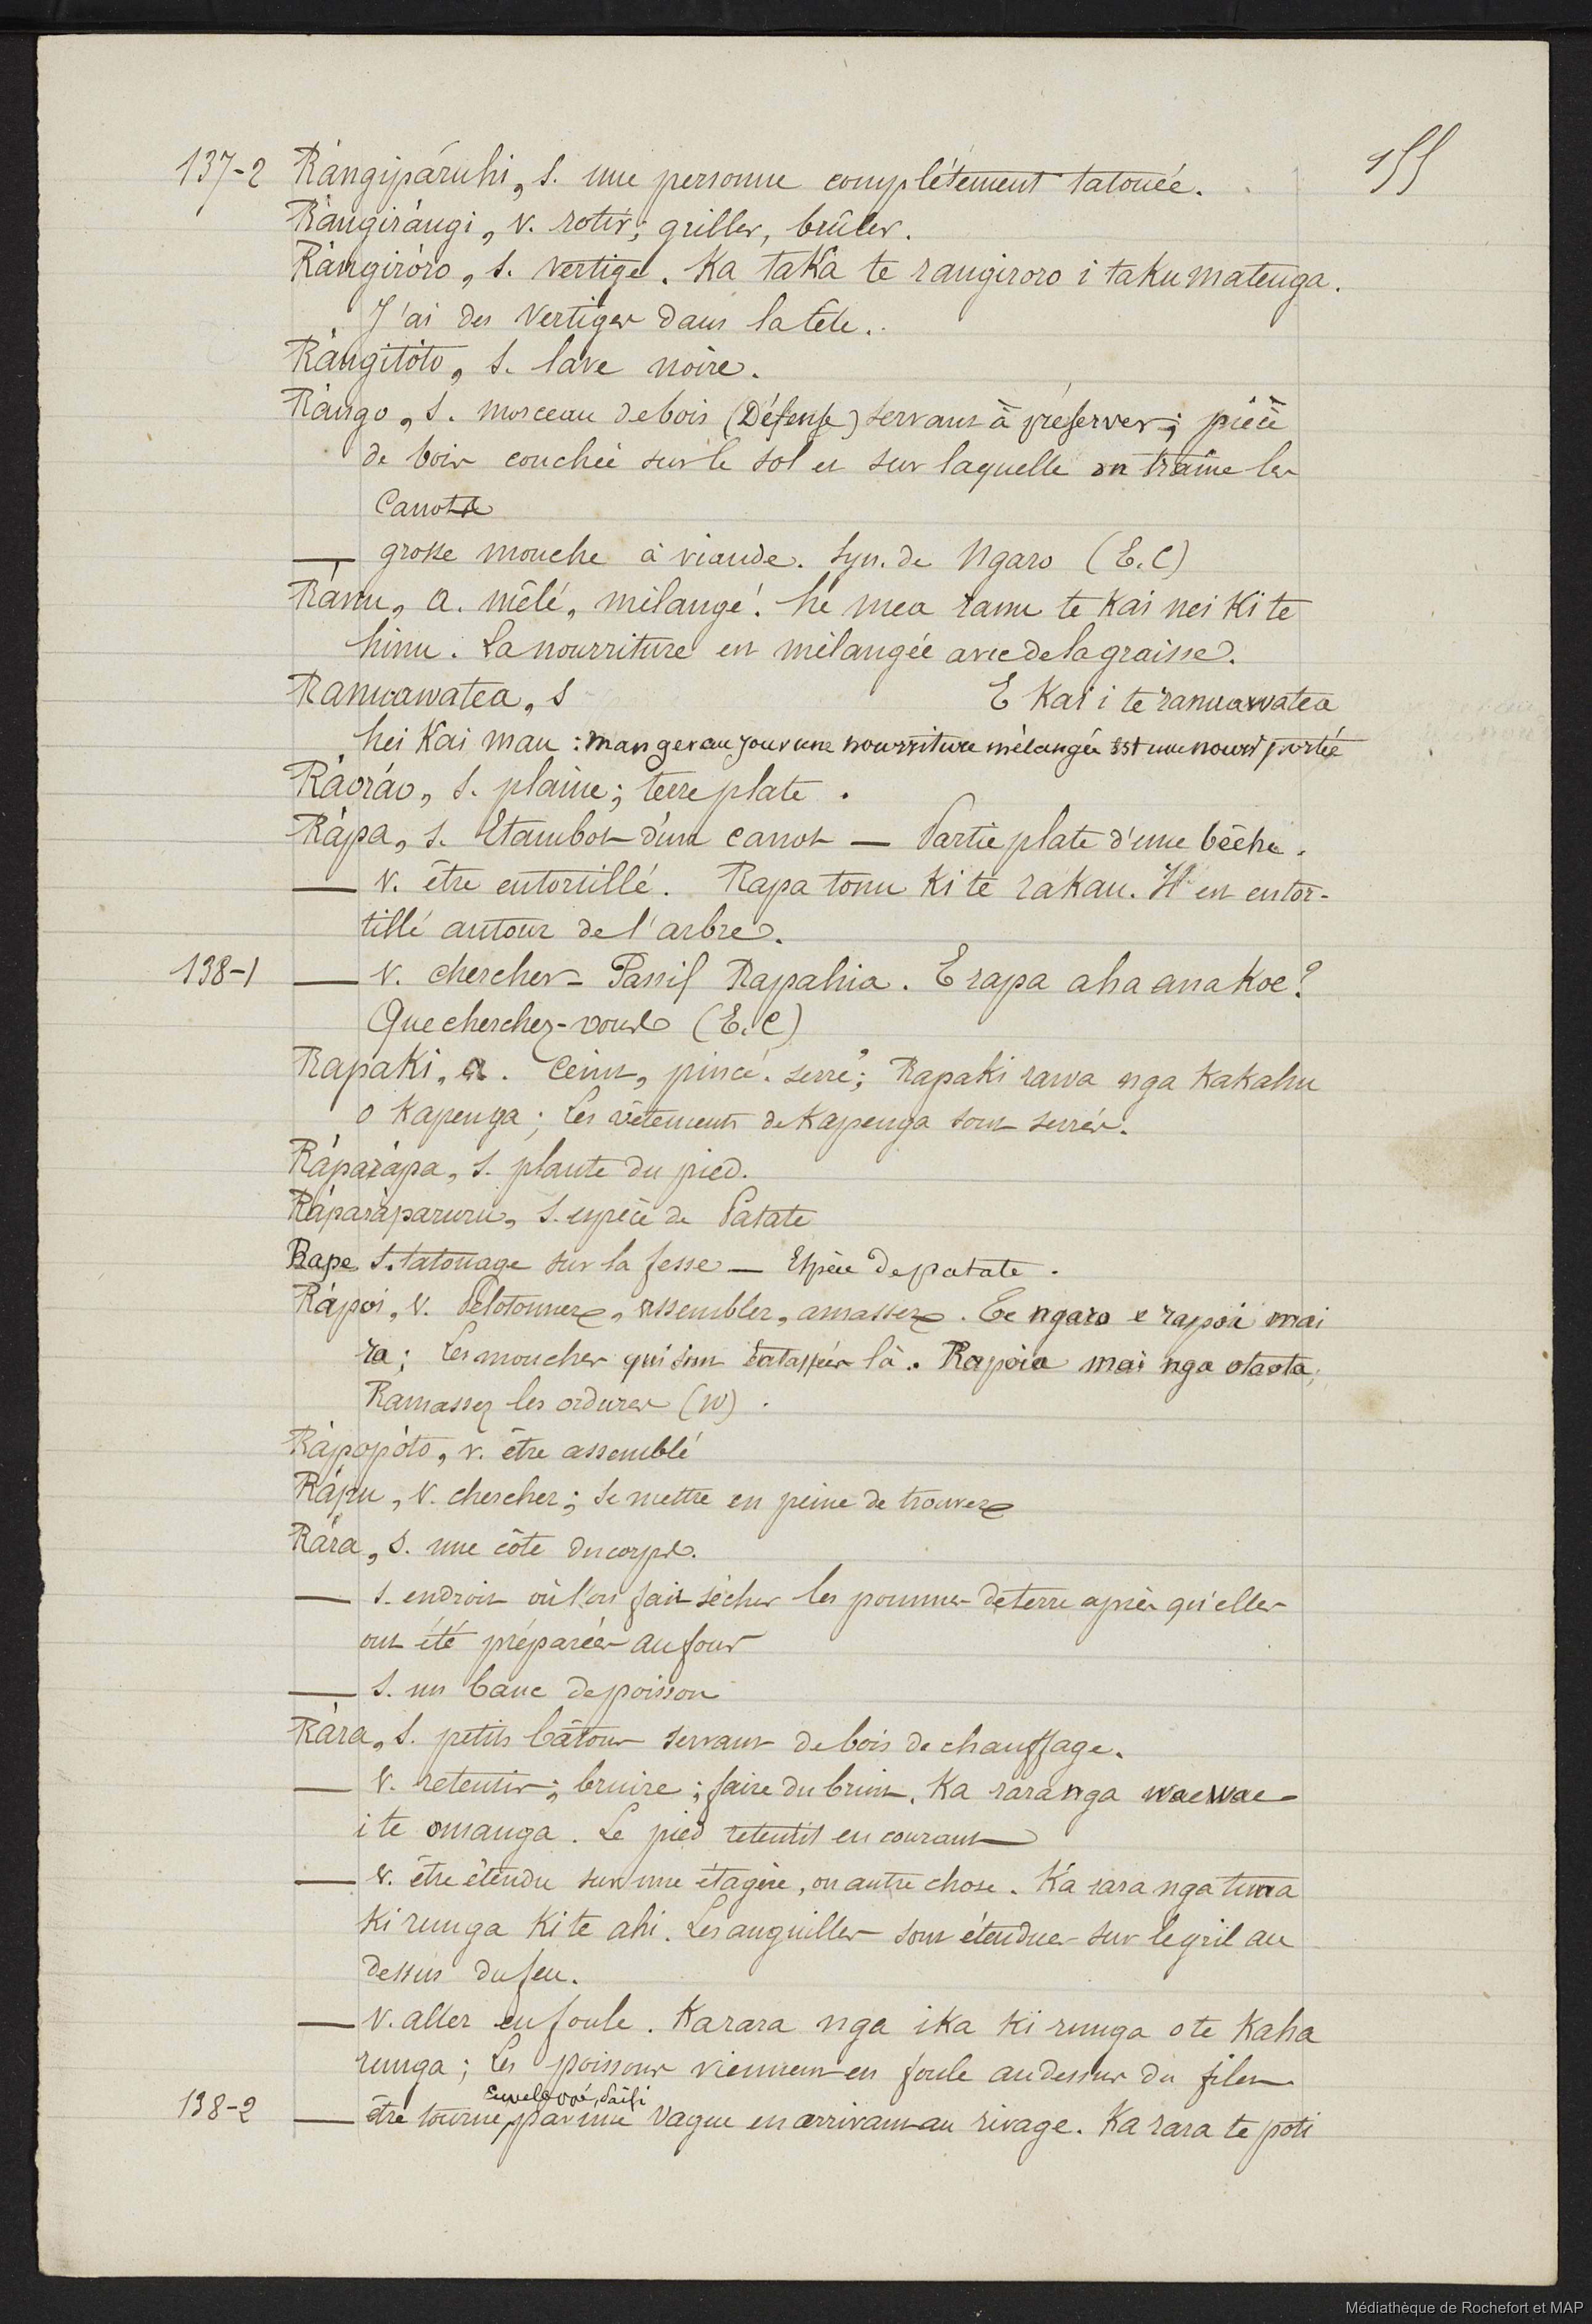 155
137-2 Ràngipáruhi, s. une personne complétement tatouée.
Ràngirángi, v. rotir; griller, brûler.
Ràngiròro, s. vertige. Ka taka te rangiroro i taku matenga.
J'ai des vertiges dans la tête.
Ràngitòto, s. lave noire.
Ràngo, s. morceau de bois (Défense) servant à préserver; pièce
de bois couchée sur le sol et sur laquelle on traîne les
Canots
— grosse mouche à viande. Syn. de Ngaro (E.C)
Ránu, a. mêlé, mélangé. he mea ranu te kai nei ki te
hinu. La nourriture est mélangée avec de la graisse.
Ranuawatea, s E kai i te ranuawatea
hei kai mau : manger au jour une nourriture mélangée est une nourr portée
Ràoráo, s. plaine; terre plate.
Rápa, s. Etambot d'un canot — Partie plate d'une bêche.
— v. être entortillé. Rapa tonu ki te rakau. Il est entor-
tillé autour de l'arbre.
138-1 — v. chercher - Passif Rapahia. E rapa aha ana koe?
Que cherchez-vous (E.C)
Rapaki, a. Ceint, pincé. serré; Rapaki rawa nga kakahu
o Kapenga; Les vêtements de Kapenga sont serrés.
Ráparápa, s. plante du pied.
Ráparàparuru, s. espèce de Patate
Rape s. tatouage sur la fesse — Espèce de patate.
Rápoi, v. Pelotonner, assembler, amasser. Te ngaro e rapoi mai
ra; Les mouches qui sont entassées là. Rapoia mai nga otaota;
Ramassez les ordures (W).
Ràpopòto, v. être assemblé
Rápu, v. chercher; se mettre en peine de trouver
Rára, s. une côte du corps.
— s. endroit où l'on fait sécher les pommes de terre après qu'elles
ont été préparées au four
— s. un banc de poisson
Ràra, s. petits bâtons servant de bois de chauffage.
— v. retentir; bruire; faire du bruit. Ka rara nga waewae
i te omanga. Le pied retentit en courant
— v. être étendu sur une étagère, ou autre chose. Ka rara nga tuna
ki runga ki te ahi. Les anguilles sont étendues sur le gril au
dessus du feu.
— v. aller en foule. Ka rara nga ika ki runga o te kaha
runga; Les poissons viennent en foule au dessus du filet
Enveloppé, saisi
138-2 — être tourné, par une vague en arrivant au rivage. Ka rara te poti
Médiathèque de Rochefort et MAP